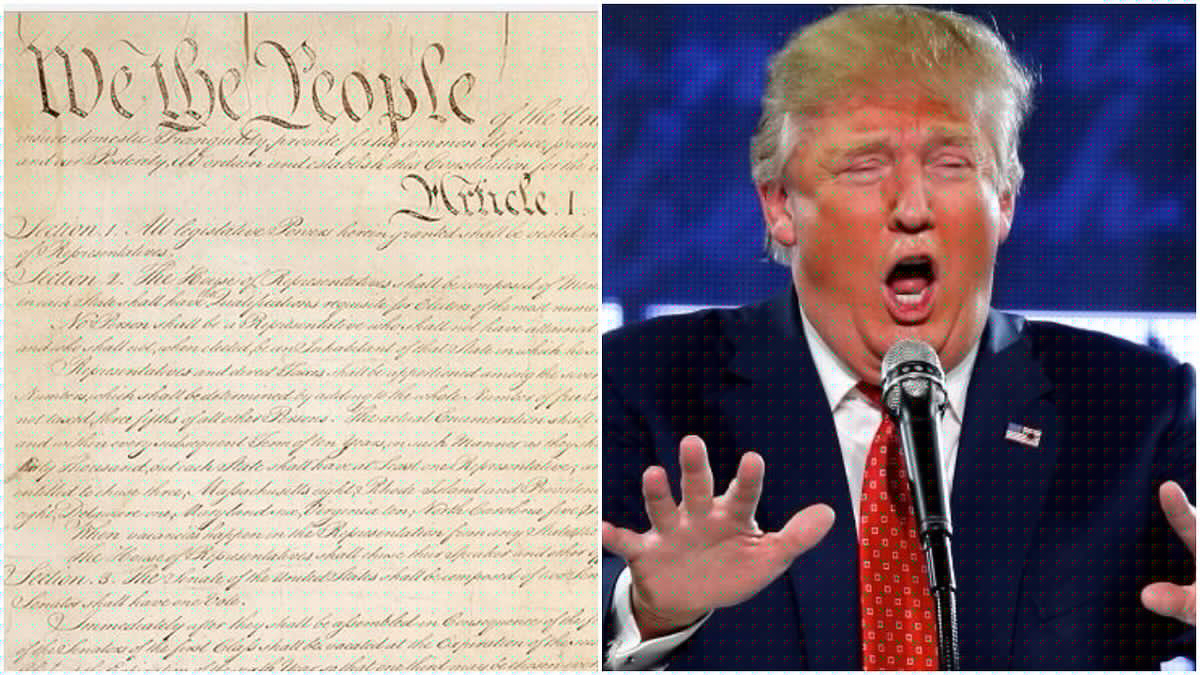 We the People
of the Un
insure domestic Tranquility, provide for the common defence, prom
and our Posterity, do ordain and establish this Constitution for the U
Article. I.
Section. 1. All legislative Powers herein granted shall be vested in
of Representatives.
Section. 2. The House of Representatives shall be composed of Mem
in each State shall have the Qualifications requisite for Electors of the most nume
No Person shall be a Representative who shall not have attained
and who shall not, when elected, be an Inhabitant of that State in which he s
Representatives and direct Taxes shall be apportioned among the sever
Numbers, which shall be determined by adding to the whole Number of free P
not taxed, three fifths of all other Persons. The actual Enumeration shall
and within every subsequent Term of ten Years, in such Manner as they sh
thirty Thousand, but each State shall have at Least one Representative; an
entitled to chuse three, Massachusetts eight, Rhode-Island and Providen
eight, Delaware one, Maryland six, Virginia ten, North Carolina five, S
When vacancies happen in the Representation from any State, the
The House of Representatives shall chuse their Speaker and other
Section. 3. The Senate of the United States shall be composed of two Sen
Senator shall have one Vote.
Immediately after they shall be assembled in Consequence of the f
of the Senators of the first Class shall be vacated at the Expiration of the
Year, so that one third may be chosen every